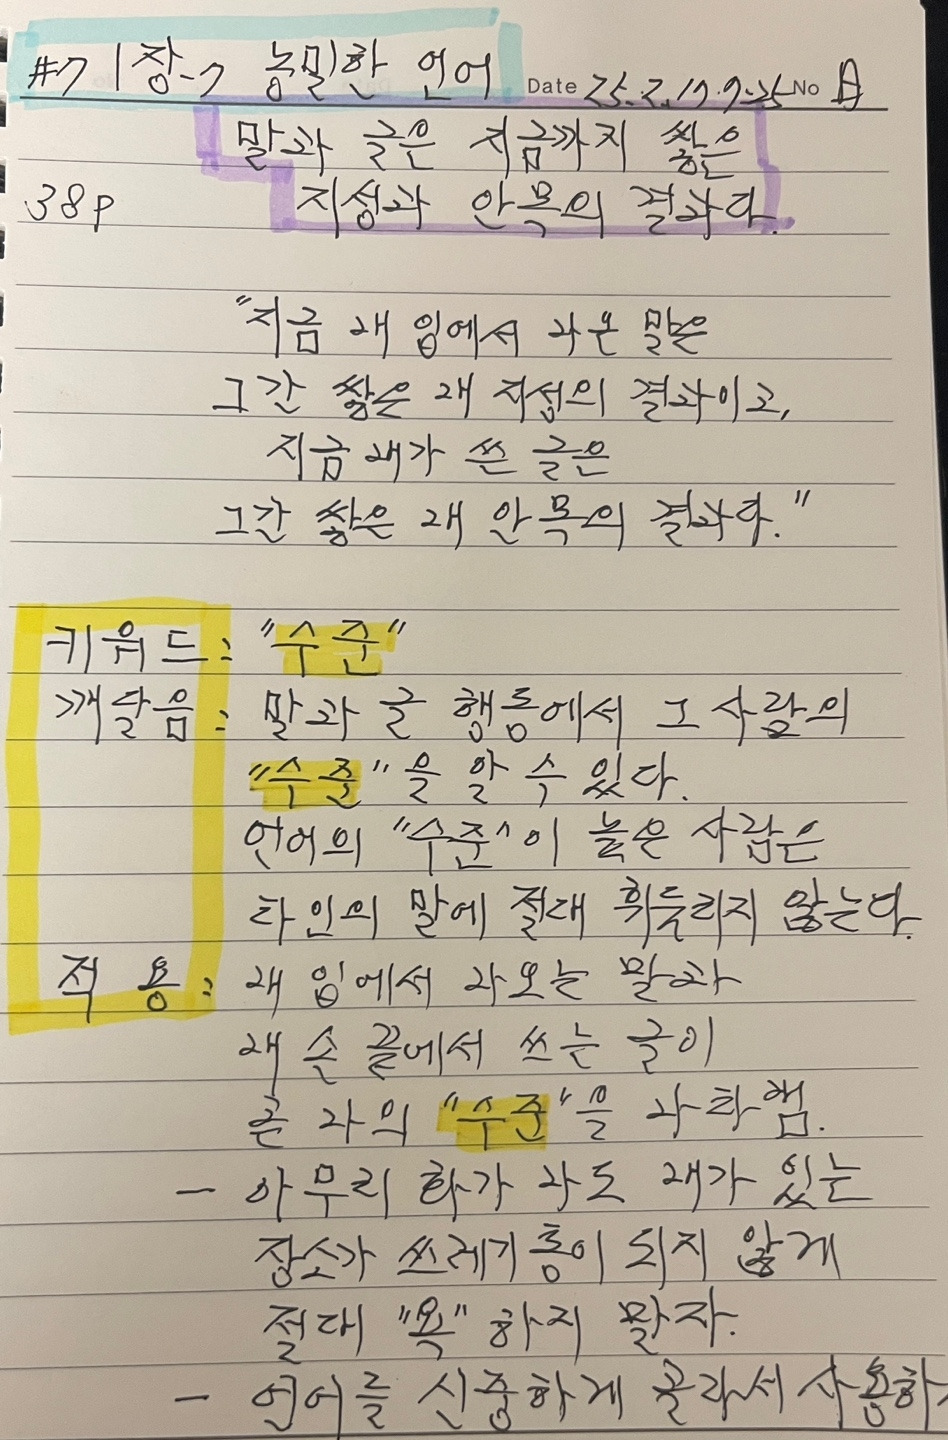 #7 1장-7 농밀한 언어 Date 25.2.17.7:25 No 月
말과 글은 지금까지 쌓은
38p 지성과 안목의 결과다.
"지금 내 입에서 나온 말은
그간 쌓은 내 지성의 결과이고,
지금 내가 쓴 글은
그간 쌓은 내 안목의 결과다."
키워드 : "수준"
깨달음 : 말과 글 행동에서 그 사람의
"수준"을 알 수 있다.
언어의 "수준"이 높은 사람은
타인의 말에 절대 휘둘리지 않는다.
적용 : 내 입에서 나오는 말과
내 손 끝에서 쓰는 글이
곧 나의 "수준"을 나타냄.
- 아무리 화가 나도 내가 있는
장소가 쓰레기통이 되지 않게
절대 "욕" 하지 말자.
- 언어를 신중하게 골라서 사용하